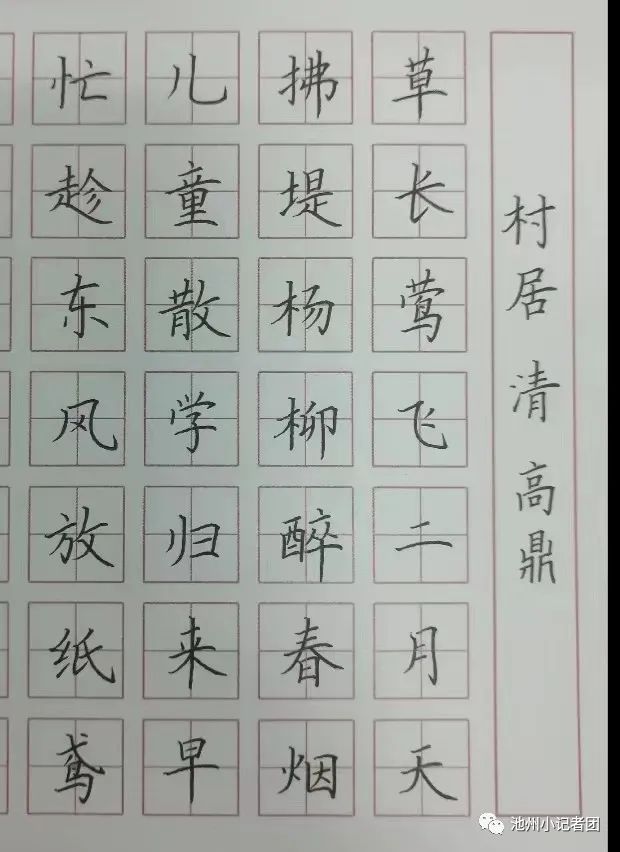 村居 清 高鼎
草长莺飞二月天
拂堤杨柳醉春烟
儿童散学归来早
忙趁东风放纸鸢
池州小记者团